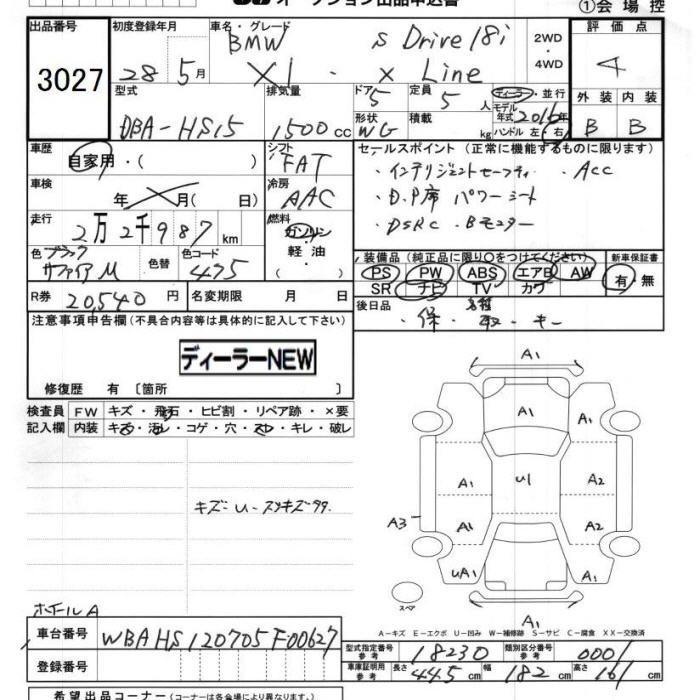 オークション出品申込書 ①会場控
出品番号 初度登録年月 車名・グレード 評価点
3027 28年5月 BMW s Drive18i 2WD
X1 ・ x Line ・4WD 4
型式 排気量 ドア 定員 ディーラー・並行 外装 内装
DBA-HS15 1500cc 5 5人 モデル年式 2016年 B B
形状 WG 積載 kg ハンドル 左・右
車歴 シフト セールスポイント (正常に機能するものに限ります)
自家用・( ) FAT ・インテリジェントセーフティ ・ACC
車検 冷房 ・D.P席 パワーシート
年 月( 日) AAC ・DSRC ・Bモニター
走行 燃料
2万2千987km ガソリン・軽油・( )
色 ブラックサファイアM 色替 色コード 475 装備品 (純正品に限り○をつけてください) 新車保証書
PS PW ABS エアB AW 有・無
SR ナビ TV カワ
R券 20,540円 名変期限 月 日 後日品
・保・取・キー
注意事項申告欄 (不具合内容等は具体的に記入して下さい)
ディーラーNEW
修復歴 有 〔箇所 〕
検査員 FW キズ・飛石・ヒビ割・リペア跡・×要
記入欄 内装 キズ・汚レ・コゲ・穴・スレ・キレ・破レ
キズ・U・スリキズ
A1
A1
A1 U1 A2
A3 A1 A2
UA1 A1
スペア
A1
ホイールA
A-キズ E-エクボ U-凹み W-補修跡 S-サビ C-腐食 XX-交換済
車台番号 WBAHS120705F00627
型式指定番号 参考 18230 類別区分番号 参考 0001
登録番号 車庫証明用 参考 長さ 445cm 幅 182cm 高さ 161cm
希望出品コーナー (コーナーは各会場により異なります)